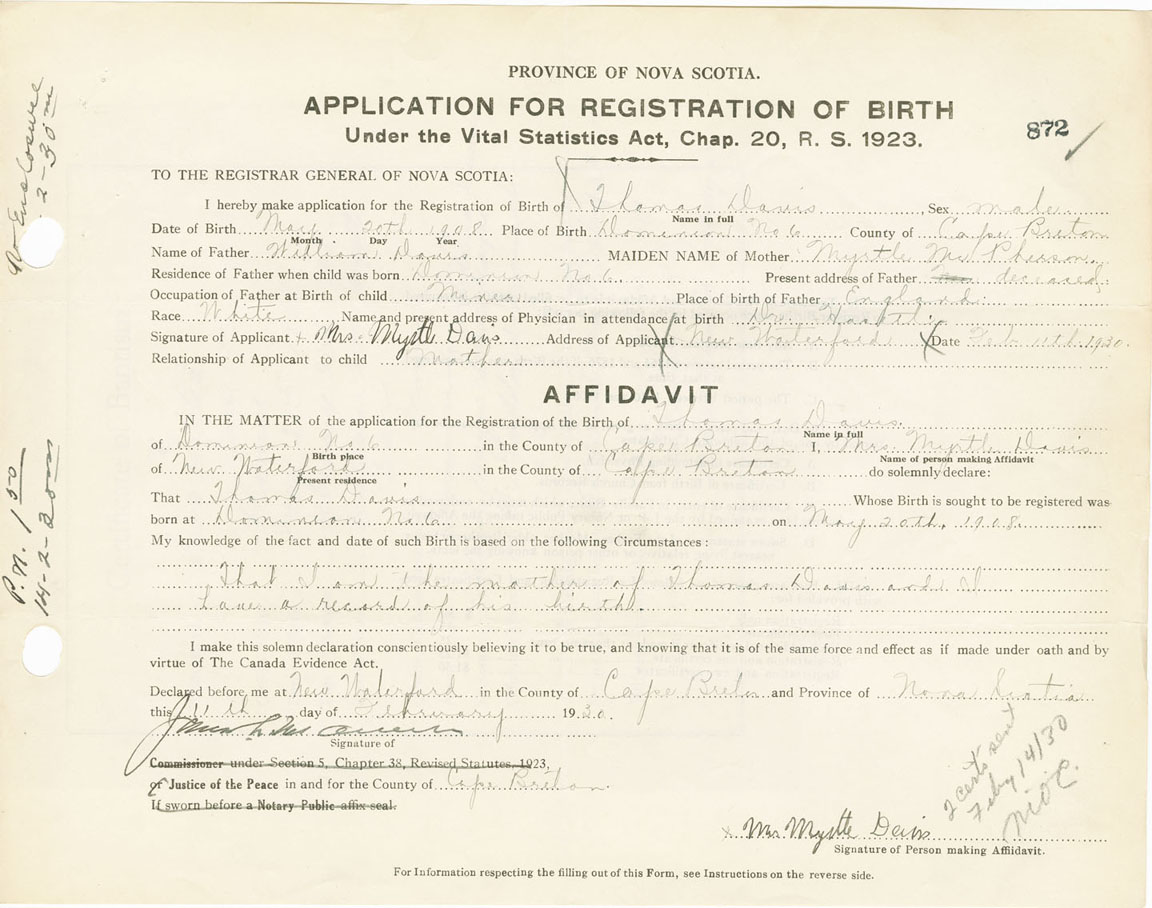 PROVINCE OF NOVA SCOTIA.
APPLICATION FOR REGISTRATION OF BIRTH
Under the Vital Statistics Act, Chap. 20, R. S. 1923.
872
TO THE REGISTRAR GENERAL OF NOVA SCOTIA:
I hereby make application for the Registration of Birth of Thomas Davis, Sex male
Name in full
Date of Birth May 20th 1908 Place of Birth Dominion No 6 County of Cape Breton
Month Day Year
Name of Father William Davis MAIDEN NAME of Mother Myrtle McPherson
Residence of Father when child was born Dominion No. 6. Present address of Father deceased
Occupation of Father at Birth of child Miner Place of birth of Father England
Race White Name and present address of Physician in attendance at birth Dr.
Signature of Applicant x Mrs Myrtle Davis Address of Applicant New Waterford Date Feb 11th 1930.
Relationship of Applicant to child Mother
AFFIDAVIT
IN THE MATTER of the application for the Registration of the Birth of Thomas Davis
Name in full
of Dominion No. 6 in the County of Cape Breton I, Mrs. Myrtle Davis
Birth place Name of person making Affidavit
of New Waterford in the County of Cape Breton do solemnly declare:
Present residence
That Thomas Davis Whose Birth is sought to be registered was
born at Dominion No. 6 on May 20th, 1908.
My knowledge of the fact and date of such Birth is based on the following Circumstances :
That I am the mother of Thomas Davis and I
have a record of his birth.
I make this solemn declaration conscientiously believing it to be true, and knowing that it is of the same force and effect as if made under oath and by
virtue of The Canada Evidence Act.
Declared before me at New Waterford in the County of Cape Breton and Province of Nova Scotia
this 11th day of February 1930.
Signature of
Commissioner under Section 5, Chapter 38, Revised Statutes, 1923,
of Justice of the Peace in and for the County of Cape Breton
If sworn before a Notary Public affix seal.
x Mrs Myrtle Davis
Signature of Person making Affiidavit.
For Information respecting the filling out of this Form, see Instructions on the reverse side.
2 certs sent
Feby 14/30
No Enclosure
2-30
P.N. 1 50
14-2-30